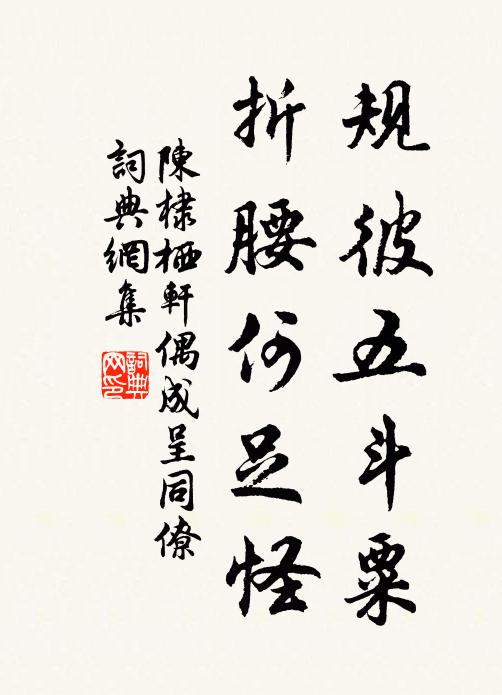 規彼五斗粟
折腰何足怪
陳棣栖軒偶成呈同僚
詞典網集
詞典網印